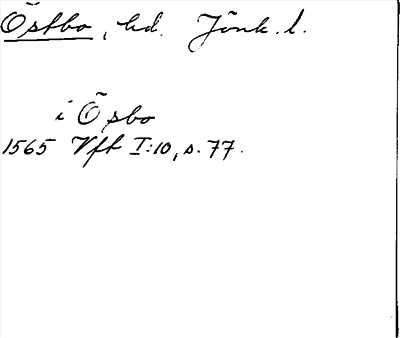 Östbo, hd. Jönk. l.
i Ösbo
1565 Vft I:10, s. 77.